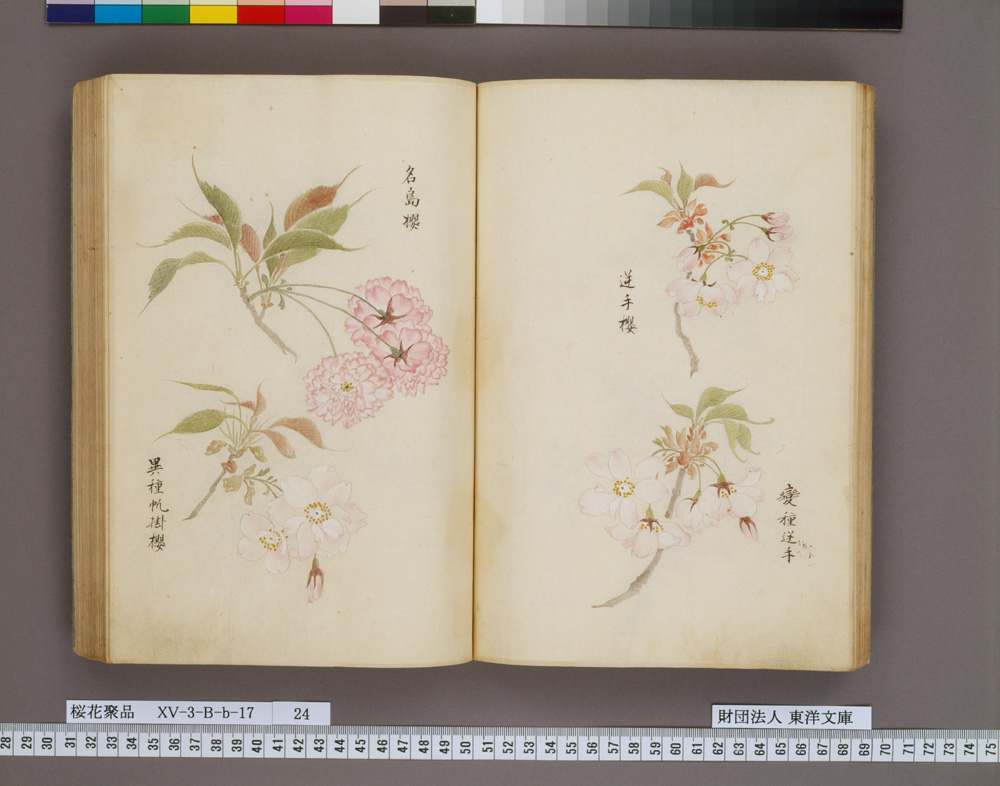 逆手櫻
變種逆手
名島櫻
異種帆掛櫻
桜花聚品 XV-3-B-b-17 24
財団法人 東洋文庫
28 29 30 31 32 33 34 35 36 37 38 39 40 41 42 43 44 45 46 47 48 49 50 51 52 53 54 55 56 57 58 59 60 61 62 63 64 65 66 67 68 69 70 71 72 73 74 75